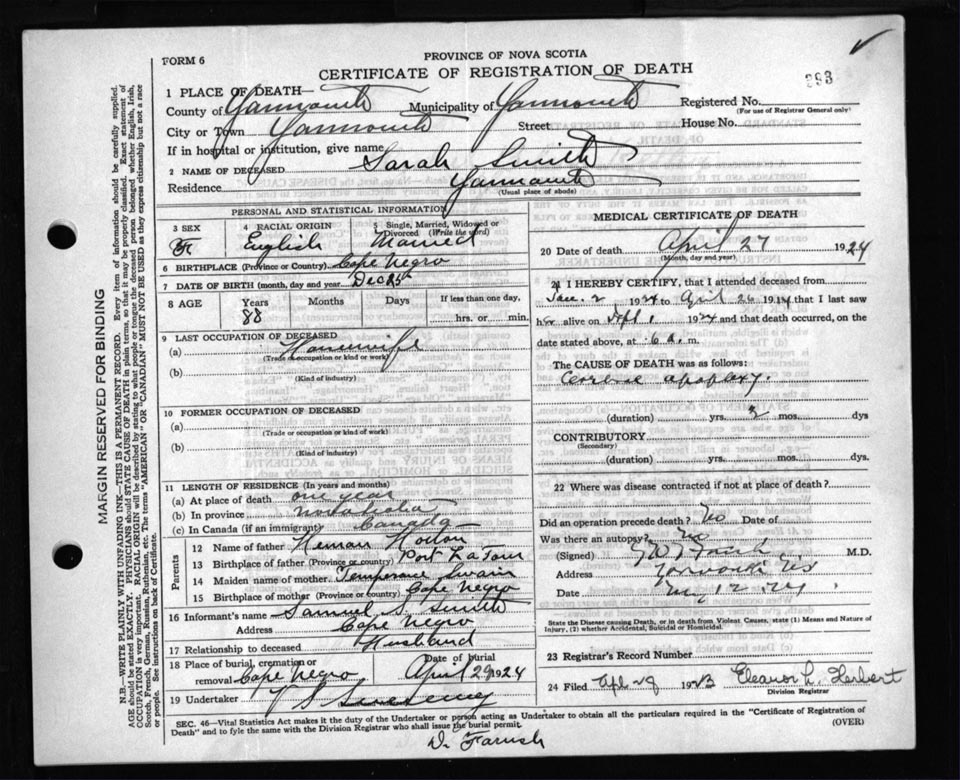 FORM 6
PROVINCE OF NOVA SCOTIA
CERTIFICATE OF REGISTRATION OF DEATH
1 PLACE OF DEATH—
County of Yarmouth Municipality of Yarmouth Registered No.
(For use of Registrar General only)
City or Town Yarmouth Street House No.
If in hospital or institution, give name
2 NAME OF DECEASED Sarah Smith
Residence Yarmouth
(Usual place of abode)
PERSONAL AND STATISTICAL INFORMATION
3 SEX 4 RACIAL ORIGIN 5 Single, Married, Widowed or Divorced (Write the word)
F English Married
6 BIRTHPLACE (Province or Country) Cape Negro
7 DATE OF BIRTH (month, day and year) Dec 25
8 AGE Years Months Days If less than one day,
88 hrs. or min.
9 LAST OCCUPATION OF DECEASED
(a) Housewife
(Trade or occupation or kind or work)
(b)
(Kind of industry)
10 FORMER OCCUPATION OF DECEASED
(a)
(Trade or occupation or kind of work)
(b)
(Kind of industry)
11 LENGTH OF RESIDENCE (In years and months)
(a) At place of death one year
(b) In province Nova Scotia
(c) In Canada (if an immigrant) Canada
Parents
12 Name of father Heman
13 Birthplace of father (Province or country) Port La Tour
14 Maiden name of mother Temperance Swain
15 Birthplace of mother (Province or Country) Cape Negro
16 Informant's name Samuel S. Smith
Address Cape Negro
17 Relationship to deceased Husband
18 Place of burial, cremation or removal Cape Negro Date of burial April 29 1924
19 Undertaker V S Sweeney
MEDICAL CERTIFICATE OF DEATH
20 Date of death April 27 1924
(Month, day and year)
21 I HEREBY CERTIFY, that I attended deceased from
Jan. 2 1924 to April 26 1924 that I last saw
her alive on Sept 1 1924 and that death occurred, on
date stated above, at 6 a. m.
The CAUSE OF DEATH was as follows:
apoplexy.
(duration) yrs. 3 mos. dys
CONTRIBUTORY
(Secondary)
(duration) yrs. mos. dys.
22 Where was disease contracted if not at place of death?
Did an operation precede death? No Date of
Was there an autopsy? No
(Signed) M.D.
Address Yarmouth N.S.
Date 12 24
State the Disease causing Death, or in death from Violent Causes, state (1) Means and Nature of Injury, (2) whether Accidental, Suicidal or Homicidal.
23 Registrar's Record Number
24 Filed Apl 29 1923 Eleanor L. Herbert
Division Registrar
SEC. 46—Vital Statistics Act makes it the duty of the Undertaker or person acting as Undertaker to obtain all the particulars required in the "Certificate of Registration of
Death" and to fyle the same with the Division Registrar who shall issue the burial permit. (OVER)
D. Farish
MARGIN RESERVED FOR BINDING
N.B.—WRITE PLAINLY WITH UNFADING INK—THIS IS A PERMANENT RECORD. Every item of information should be carefully supplied.
AGE should be stated EXACTLY. PHYSICIANS should STATE CAUSE OF DEATH in plain terms, so that it may be properly classified. Exact statement of
OCCUPATION is very important. RACIAL ORIGIN will be described by stating to what people or tongue the deceased person belonged whether English, Irish,
Scotch, French, German, Russian, Ruthenian, etc. The terms "AMERICAN" OR "CANADIAN" MUST NOT BE USED as they express citizenship but not a race
or people. See instructions on back of Certificate.